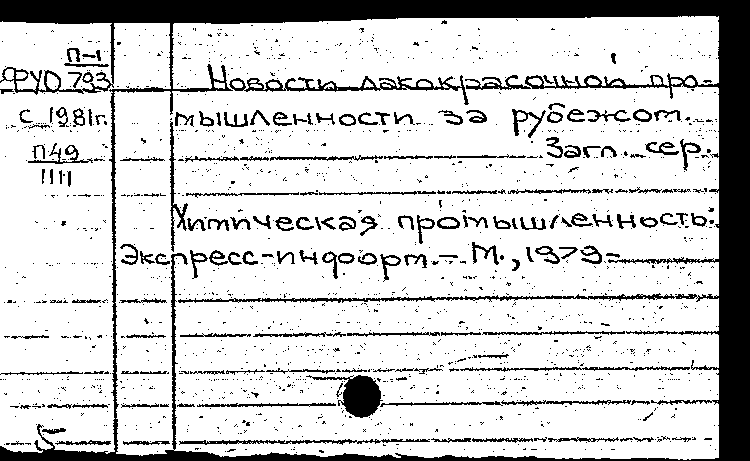 П-1
ФУО 793
с 1981г.
П49
1111
Новости лакокрасочной про-
мышленности за рубежом.
Загл. сер.
Химическая промышленность.
Экспресс-информ. - М., 1979-
5